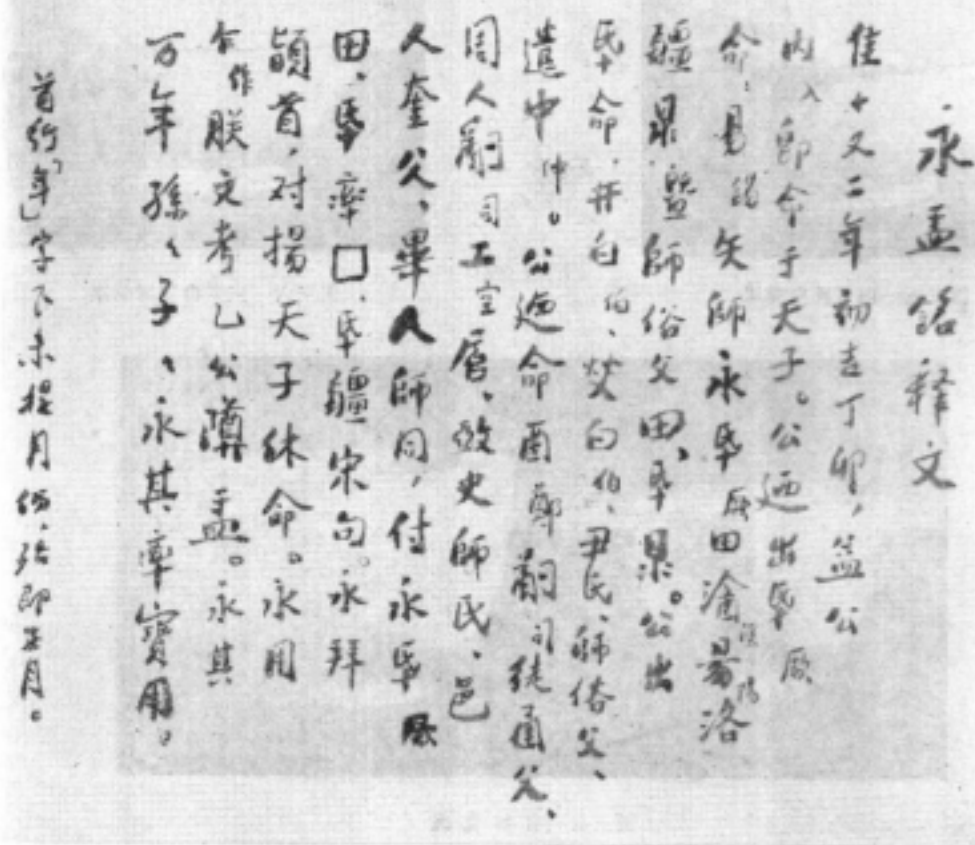 永盂铭释文
隹十又二年初吉丁卯，益公
内入即命于天子。公迺出氒厥
命，易錫矢師永氒厥田淦昜洛
疆眔師俗父田，氒眔。公出
氒命，井白伯、焚白伯、尹氏、師俗父、
遣中仲。公迺命酉鄭嗣司徒圅父、
周人嗣司工空居、啟史師氏、邑
人奎父、畢人師同，付永氒厥
田，氒率□，氒疆宋句。永拜
頴首，对揚天子休命。永用
乍作朕文考乙公隣盂。永其
万年孫孫子子永其率寶用。
首行「年」字下未提月份，疑即正月。